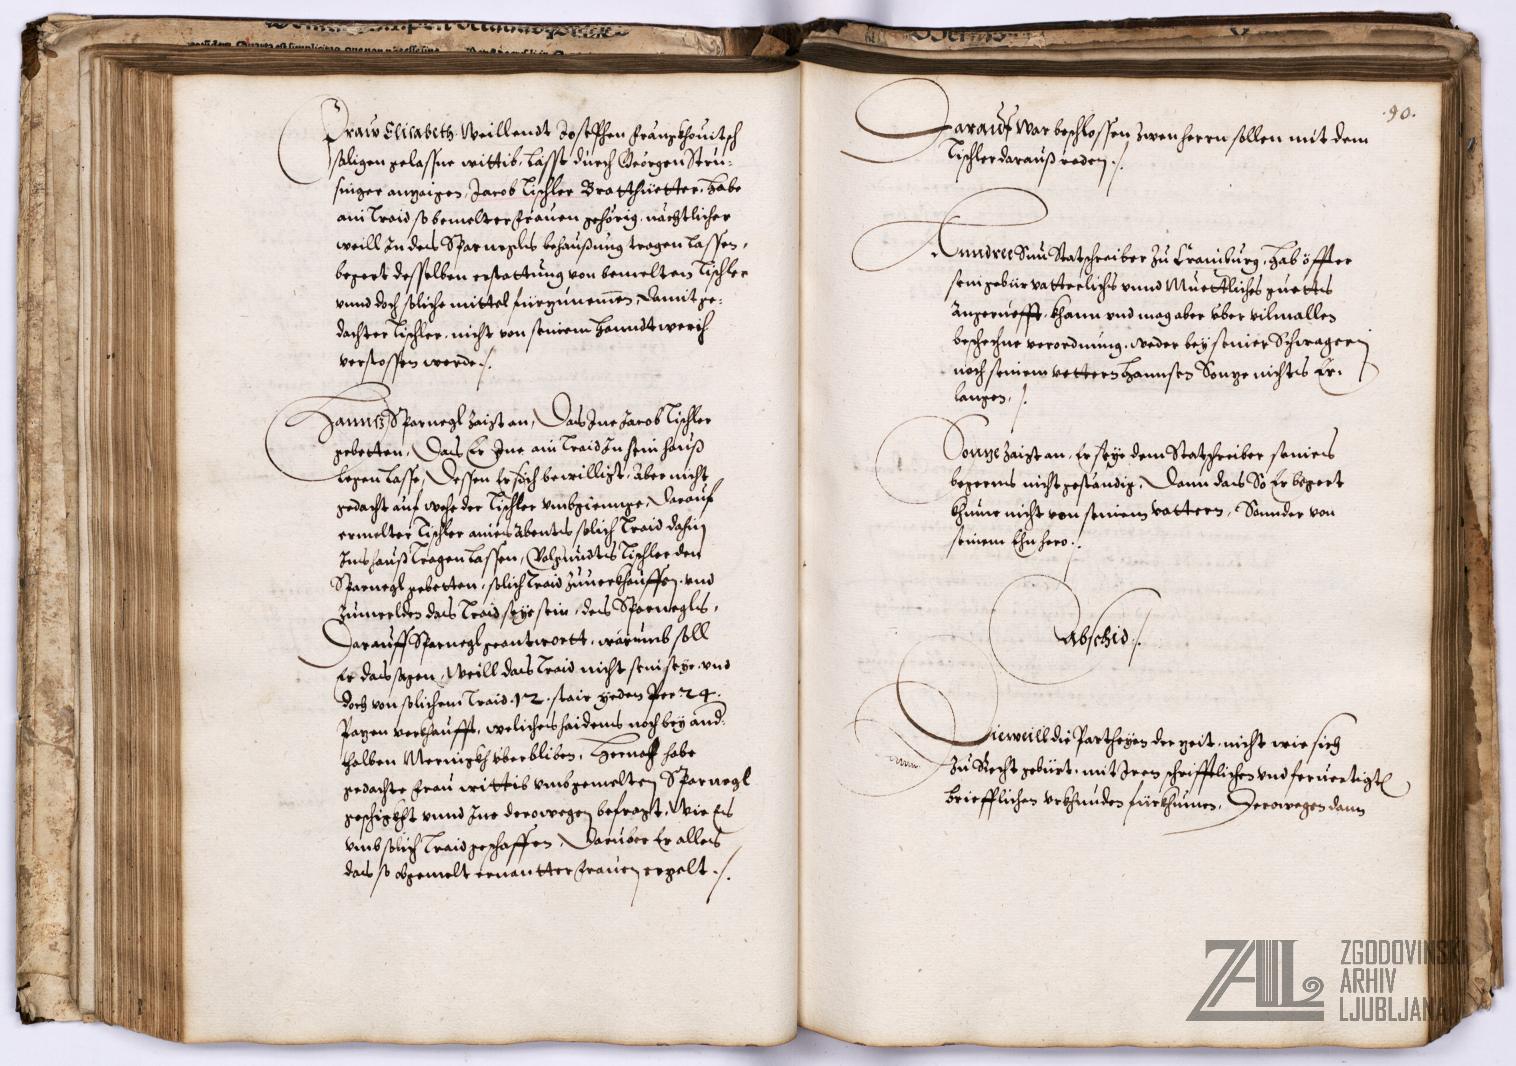 Fraw Elisabeth Weillendt Josephen Frangkhouitsch
säligen gelassne wittib, lasst durch Georgen Stru-
singer anzaigen, Jacob Tischler Bratthüetter, habe
ain Traid so bemelter frauen gehörig, nächtlicher
weill in des Sparnegls behaußung tragen lassen,
begert desselben erstattung von bemeltem Tischler
vnnd doch soliche mittel fürzunemen, damit ge-
dachter Tischler, nicht von seinem hanndtwerch
verstossen werde ./.
Hanns Sparnegl zaigt an, Das Ine Jacob Tischler
gebetten, Das Er Ime ain Traid In sein hauß
legen lasse, Dessen Er sich bewilligt, Aber nicht
gedacht auf weße der Tischler vmbgienge, Darauf
ermelter Tischler aines Abents solich Traid dahin
Ins hauß tragen lassen, Volgundts Tischler den
Sparnegl gebetten, solich Traid zuuerkhauffen, vnd
zumelden das Traid seye sein, des Sparnegls,
Darauff Sparnegl geantwortt, warumb soll
Er das sagen, Weill das Traid nicht sein seye, vnd
doch von solichem Traid .12. stair yeden per 24.
Pazen verkhaufft, weliches haidens noch bey and-
halben Merningkh vberbliben, Hernach habe
gedachte Frau wittib vmb gemelten Sparnegl
geschigkht vnnd Ine derowegen befragt, Wie Es
vmb solich Traid geschaffen, Darüber Er alles
das so obgemelt ernantter Frauen erzelt ./.
.90.
Darauf War beschlossen zwen herrn sollen mit dem
Tischler darauß reden ./.
Anndree Snu Statschreiber Zu Crainburg, hab öffter
sein gebür vatterlichs vnnd Muettliches guetts
Angeruefft, khann vnd mag aber vber vilmallen
beschechne verordnung, weder bey seiner Schwagerin
noch seinem vettern Hannsen Sonze nichts Er-
langen, ./.
Sonze zaigt an, Er seye dem Statschreiber seines
begerns nicht geständig, Dann das So Er begert
khume nicht von seinem vattern, Sonnder von
seinem Ehnhero ./.
Abschid ./.
Dieweill die Partheyen der zeit, nicht wie sich
Zu Recht gebürt, mit Iren schrifftlichen vnd feruertigten
briefflichen vrkhunden fürkhumen, Derowegen dann
ZAL
ZGODOVINSKI
ARHIV
LJUBLJANA